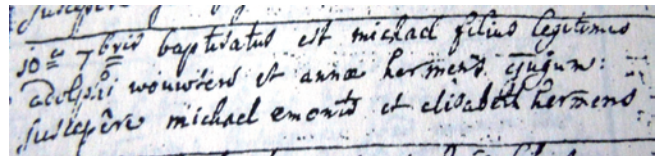 suscepere
10ma 7bris baptisatus est michael filius legitimus
adolphi wouwters et annæ hermens cjugum:
suscepêre michael emonts et elisabeth hermens